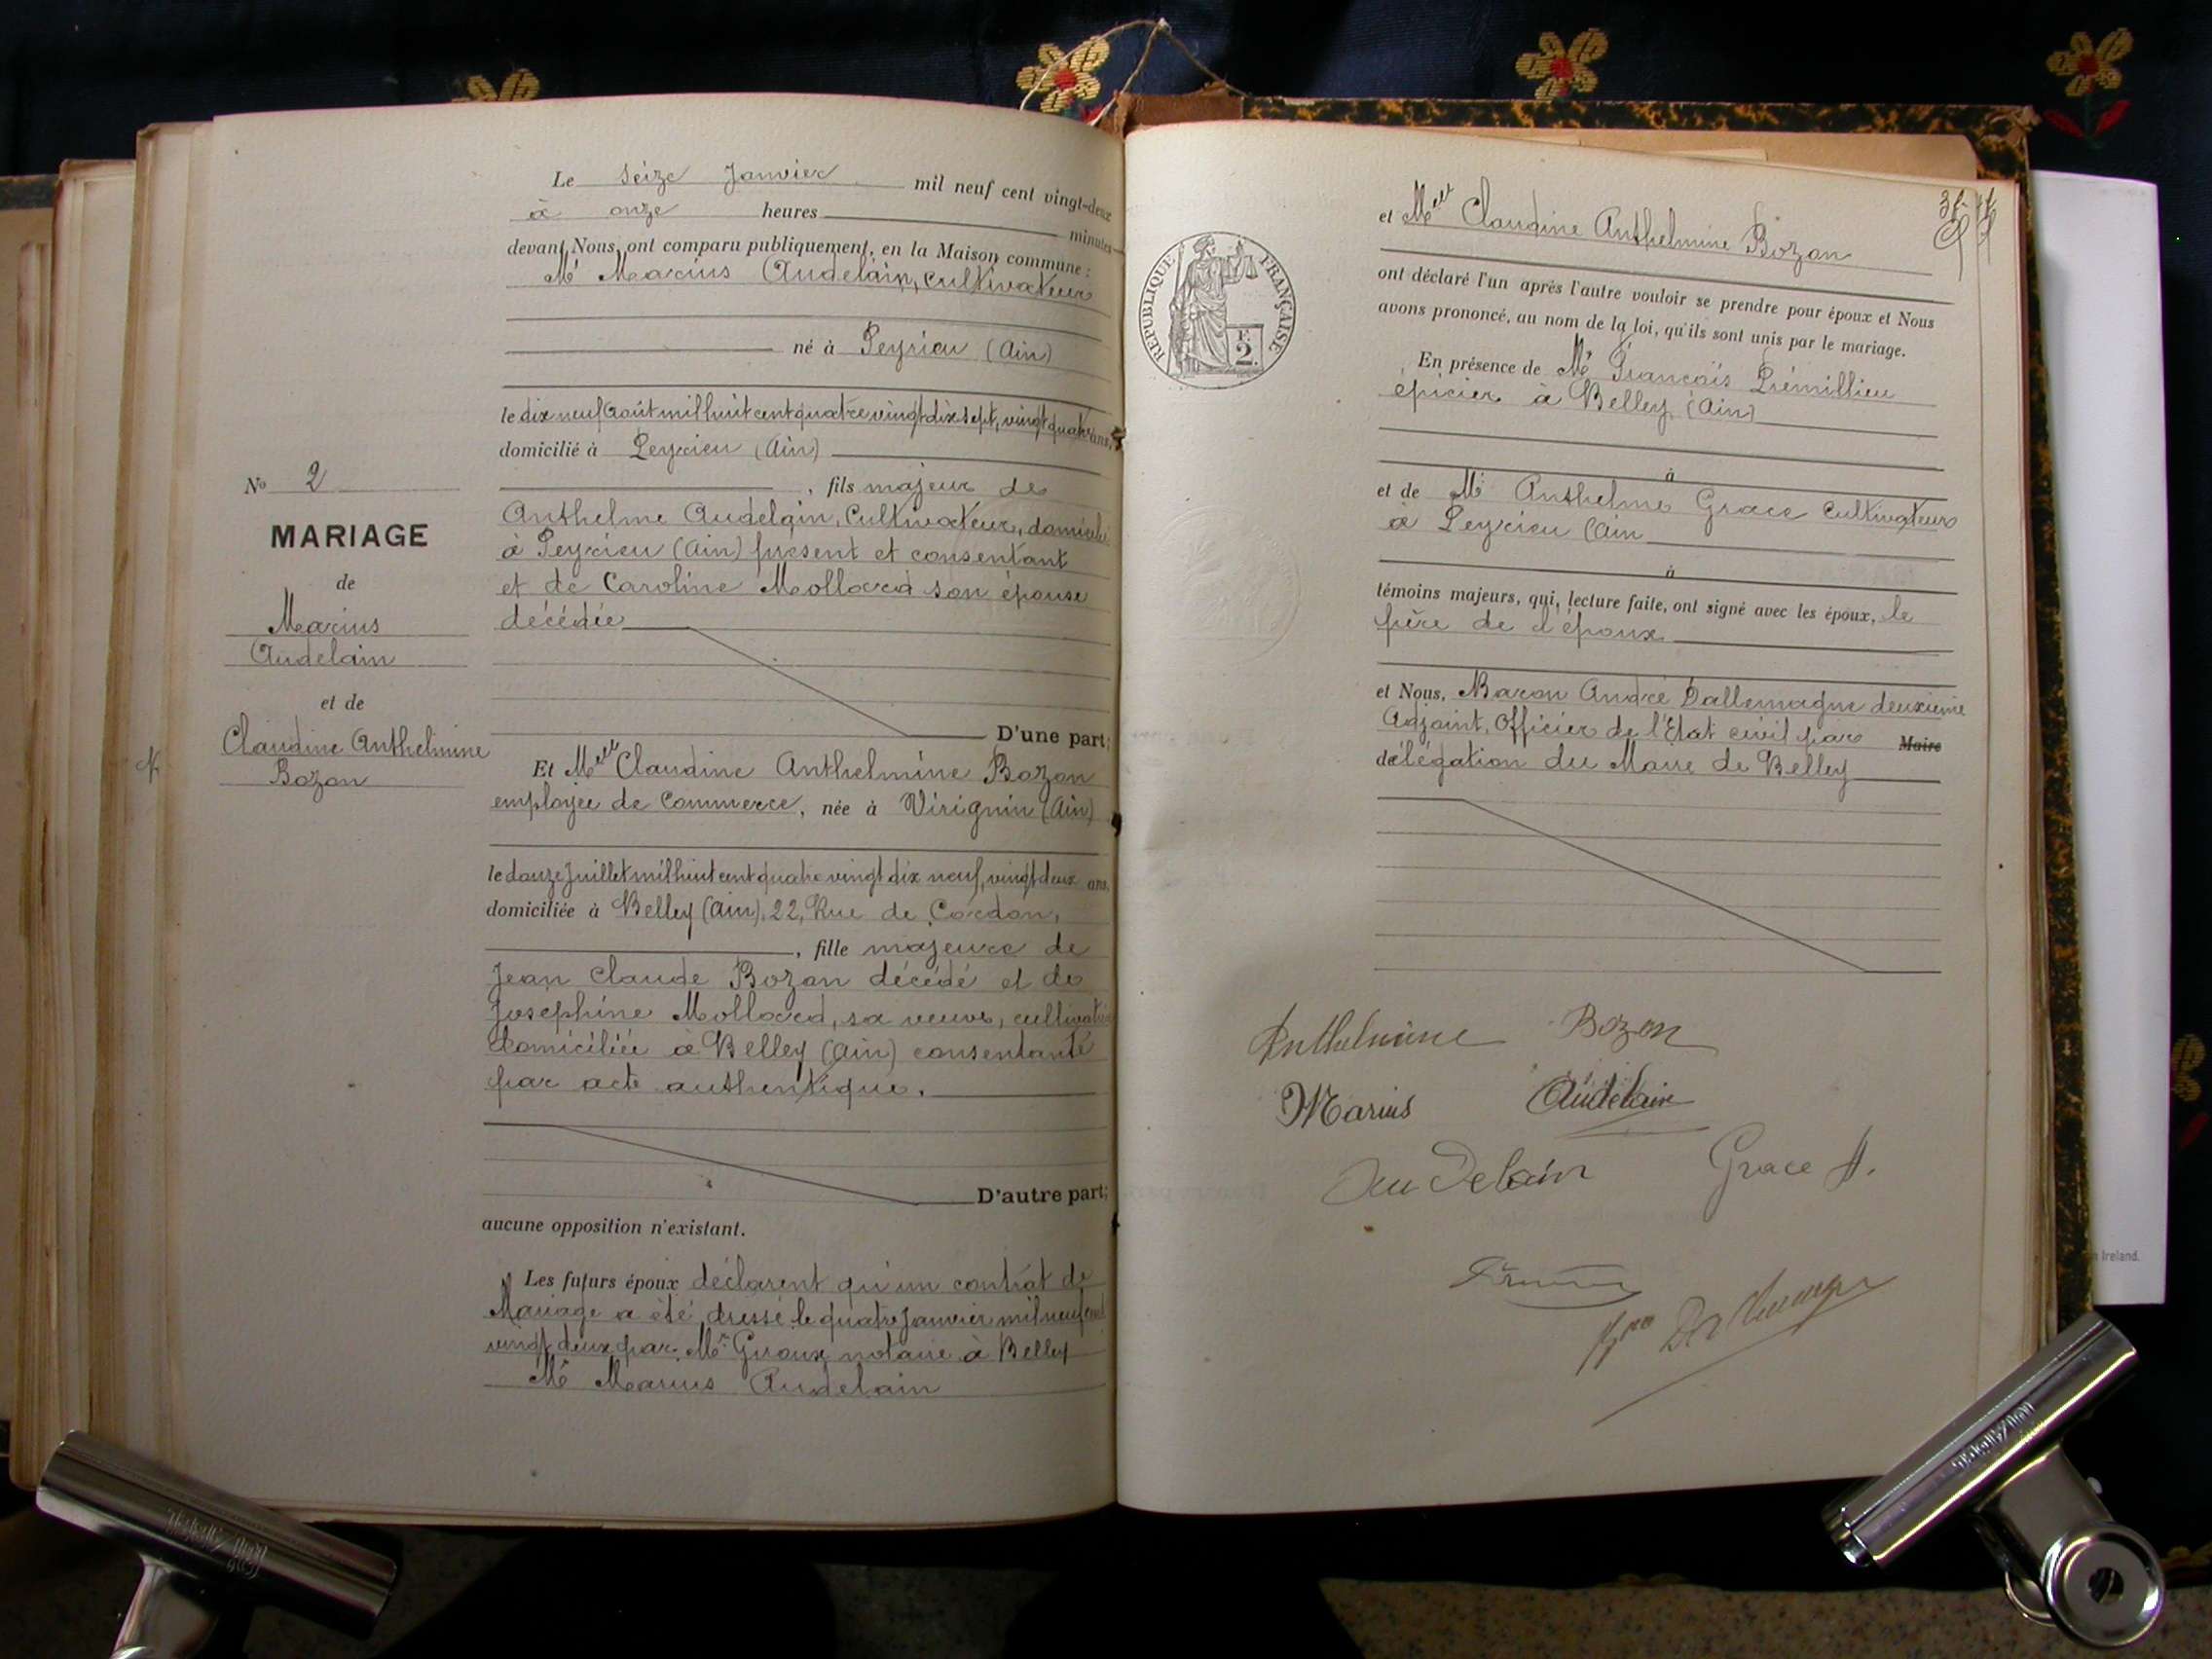 Le seize Janvier mil neuf cent vingt-deux
à onze heures minutes
devant Nous, ont comparu publiquement, en la Maison commune :
Mr Marius Audelain, cultivateur
né à Peyrieu (Ain)
le dix neuf Août mil huit cent quatre vingt dix sept, vingt quatre ans,
domicilié à Peyrieu (Ain)
, fils majeur de
Anthelme Audelain, Cultivateur, domicilié
à Peyrieu (Ain) présent et consentant
et de Caroline Mollard son épouse
décédée
D'une part;
No 2
MARIAGE
de
Marius
Audelain
et de
Claudine Anthelmine
Bozon
Et Melle Claudine Anthelmine Bozon
employée de Commerce, née à Virignin (Ain)
le douze Juillet mil huit cent quatre vingt dix neuf, vingt deux ans,
domiciliée à Belley (Ain), 22, Rue de Cordon,
, fille majeure de
Jean Claude Bozon décédé et de
Joséphine Mollard, sa veuve, cultivatrice
domiciliée à Belley (Ain) consentante
par acte authentique.
D'autre part;
aucune opposition n'existant.
Les futurs époux déclarent qu'un contrat de
Mariage a été dressé le quatre Janvier mil neuf cent
vingt deux par Me Giroux notaire à Belley
Mr Marius Audelain
REPUBLIQUE FRANÇAISE
F.
2
et Melle Claudine Anthelmine Bozon
ont déclaré l'un après l'autre vouloir se prendre pour époux et Nous
avons prononcé, au nom de la loi, qu'ils sont unis par le mariage.
En présence de Mr François Prémillieu
épicier à Belley (Ain)
à
et de Mr Anthelme Grace cultivateur
à Peyrieu (Ain
à
témoins majeurs, qui, lecture faite, ont signé avec les époux, le
père de l'époux
et Nous, Baron André Dallemagne deuxième
Adjoint, Officier de l'Etat civil par Maire
délégation du Maire de Belley
Anthelmine Bozon
Marius Audelain
Audelain Grace A.
Bon Dallemagne
Ireland.